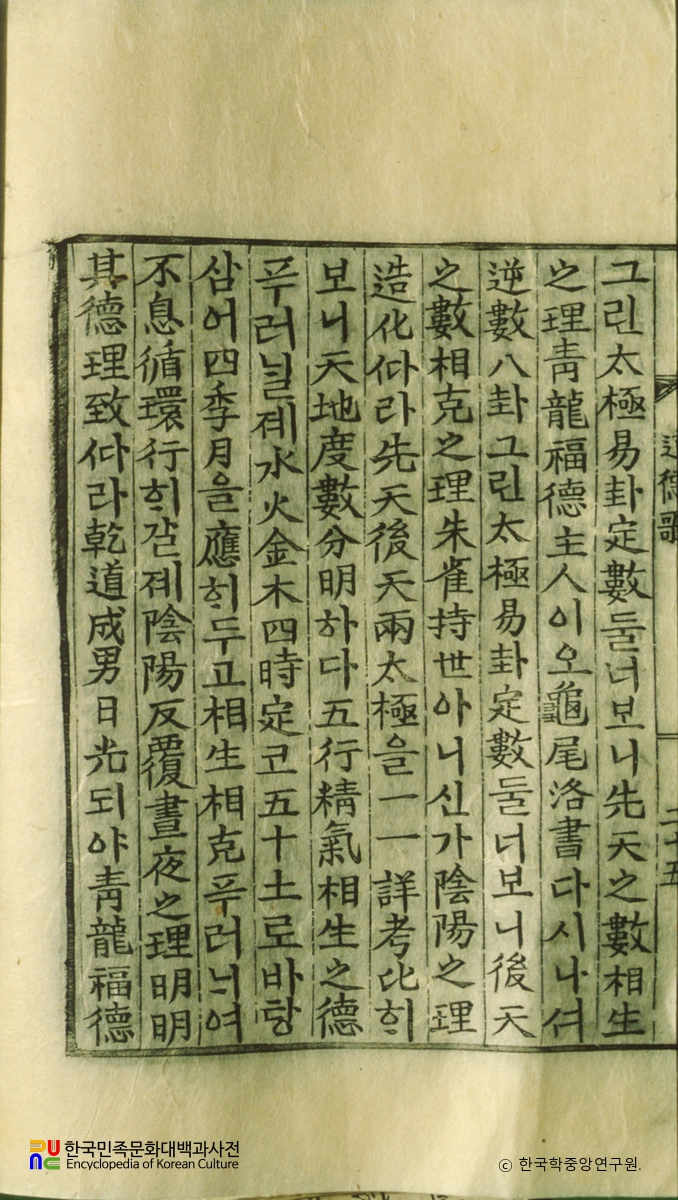 道德歌 二十五
그린太極易卦定數둘너보니先天之數相生
之理靑龍福德主人이오龜尾洛書다시나셔
逆數八卦그린太極易卦定數둘너보니後天
之數相克之理朱雀持世아니신가陰陽之理
造化ᄯᅡ라先天後天兩太極을一一詳考比ᄒᆡ
보니天地度數分明하다五行精氣相生之德
푸러닐졔水火金木四時定코五十土로바탕
삼어四季月을應ᄒᆡ두고相生相克푸러ᄂᆡ여
不息循環行ᄒᆡ갈졔陰陽反覆晝夜之理明明
其德理致ᄯᅡ라乾道成男日光되야靑龍福德
한국민족문화대백과사전
Encyclopedia of Korean Culture
ⓒ 한국학중앙연구원.